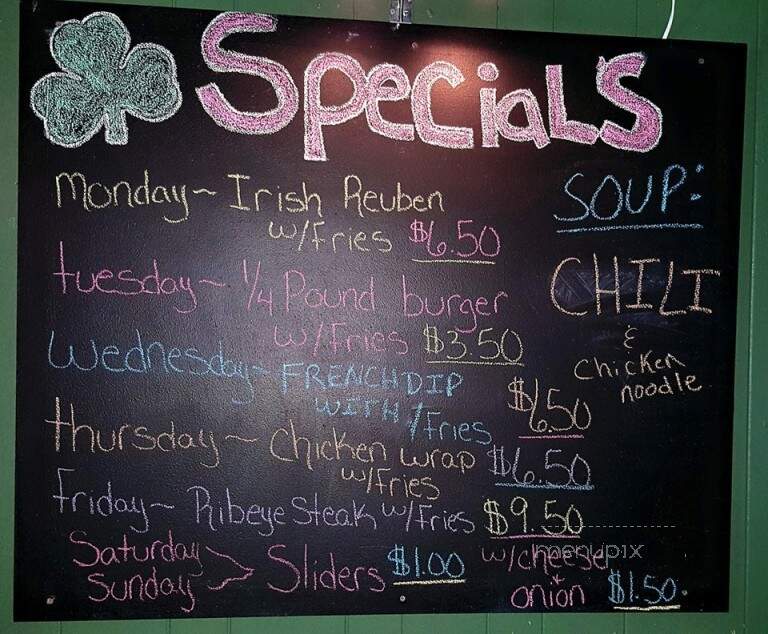 Specials
Monday ~ Irish Reuben
w/fries $6.50
tuesday ~ 1/4 Pound burger
w/Fries $3.50
Wednesday ~ FRENCH DIP
WITH /Fries $6.50
thursday ~ chicken wrap $6.50
w/fries
Friday ~ Ribeye Steak w/Fries $9.50
Saturday
Sunday > Sliders $1.00 w/cheese
+ onion $1.50
SOUP:
CHILI
&
chicken
noodle
menupix